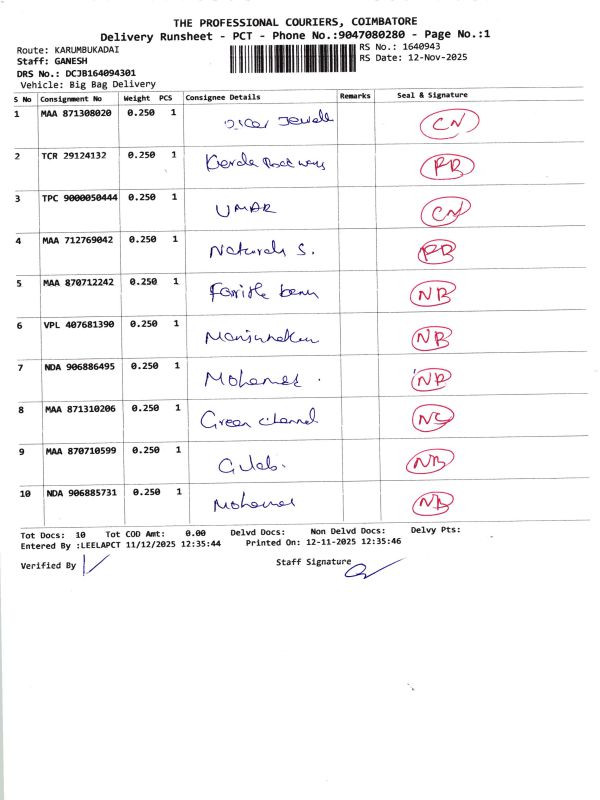 THE PROFESSIONAL COURIERS, COIMBATORE
Delivery Runsheet - PCT - Phone No.:9047080280 - Page No.:1
Route: KARUMBUKADAI
RS No.: 1640943
Staff: GANESH
RS Date: 12-Nov-2025
DRS No.: DCJB164094301
Vehicle: Big Bag Delivery
S No Consignment No Weight PCS Consignee Details Remarks Seal & Signature
1 MAA 871308020 0.250 1 CN
2 TCR 29124132 0.250 1 Kerala RB
3 TPC 9000050444 0.250 1 UMAR CN
4 MAA 712769042 0.250 1 Naturals S. RB
5 MAA 870712242 0.250 1 NB
6 VPL 407681390 0.250 1 NB
7 NDA 906886495 0.250 1 Mohamed NB
8 MAA 871310206 0.250 1 Green channel NC
9 MAA 870710599 0.250 1 Gulab. NB
10 NDA 906885731 0.250 1 Mohamed NB
Tot Docs: 10 Tot COD Amt: 0.00 Delvd Docs: Non Delvd Docs: Delvy Pts:
Entered By :LEELAPCT 11/12/2025 12:35:44 Printed On: 12-11-2025 12:35:46
Verified By
Staff Signature